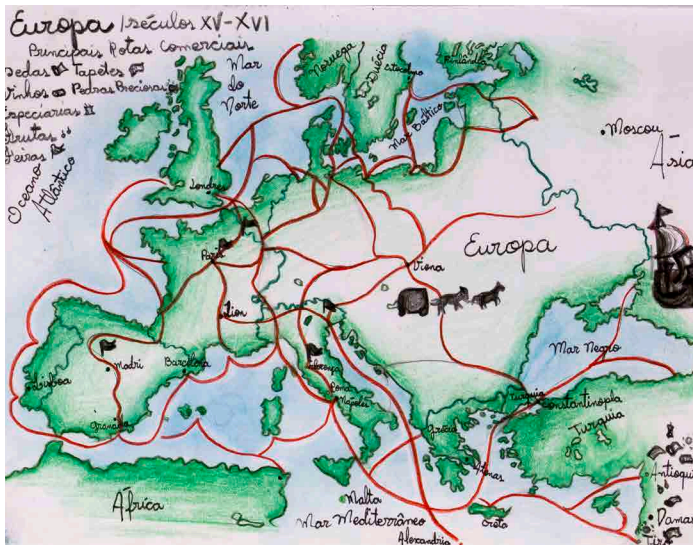 Europa /séculos XV-XVI
Principais Rotas Comerciais
Sedas Tapetes
Vinhos Pedras Preciosas
Especiarias
Frutas
Feiras
Oceano
Atlântico
Mar
do
Norte
Noruega
Suécia
Estocolmo
Finlândia
Mar Báltico
Moscou
Ásia
Londres
Paris
Europa
Viena
Lion
Lisboa
Madri
Barcelona
Granada
Florença
Roma
Nápoles
Mar Negro
Turquia
Constantinopla
Turquia
Grécia
Atenas
África
Malta
Mar Mediterrâneo
Creta
Alexandria
Antioqui
Damas
Tiro